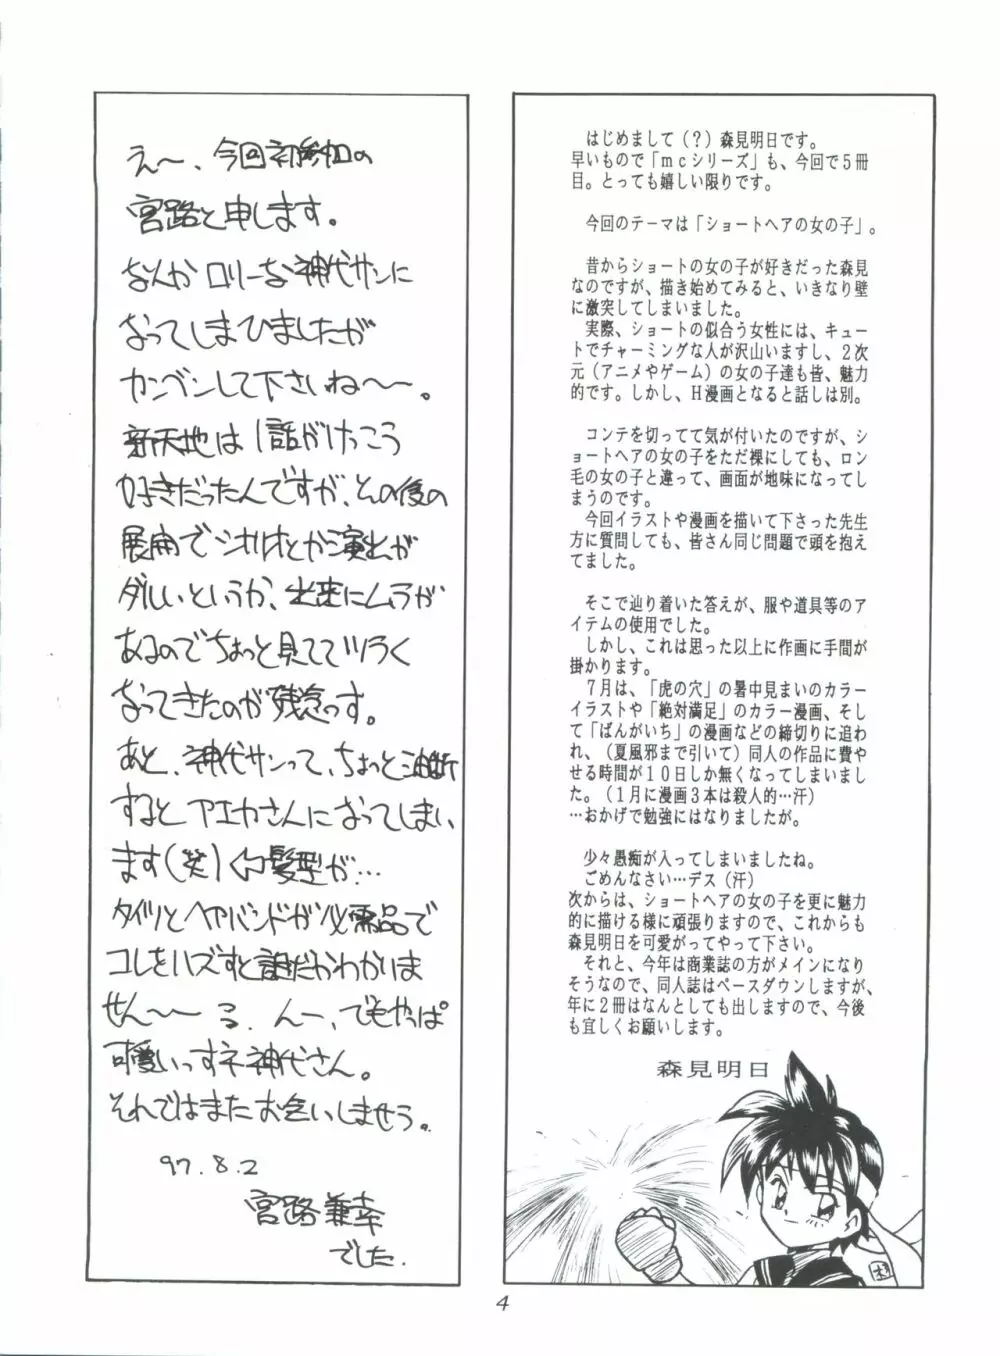 えー、今回初参加の
宮路と申します。
なんかロリーな神代サンに
なってしまひましたが
カンベンして下さいね〜〜。
新天地は1話がけっこう
好きだったんですが、その後の
展開でシナリオとか演出が
ダルいというか、出来にムラが
あるのでちょっと見ててツラく
なってきたのが残念っす。
あと、神代サンって、ちょっと油断
するとアエカさんになってしまい
ます(笑)髪型が…
タイツとヘアバンドが必需品で
コレをハズすと誰だかわかりま
せん〜〜 んー、でもやっぱ
可愛いっすネ神代さん。
それではまたお会いしませう。
97.8.2
宮路兼幸
でした.
はじめまして(?)森見明日です。
早いもので「mcシリーズ」も、今回で5冊
目。とっても嬉しい限りです。
今回のテーマは「ショートヘアの女の子」。
昔からショートの女の子が好きだった森見
なのですが、描き始めてみると、いきなり壁
に激突してしまいました。
実際、ショートの似合う女性には、キュー
トでチャーミングな人が沢山いますし、2次
元(アニメやゲーム)の女の子達も皆、魅力
的です。しかし、H漫画となると話しは別。
コンテを切ってて気が付いたのですが、シ
ョートヘアの女の子をただ裸にしても、ロン
毛の女の子と違って、画面が地味になってし
まうのです。
今回イラストや漫画を描いて下さった先生
方に質問しても、皆さん同じ問題で頭を抱え
てました。
そこで辿り着いた答えが、服や道具等のア
イテムの使用でした。
しかし、これは思った以上に作画に手間が
掛かります。
7月は、「虎の穴」の暑中見まいのカラー
イラストや「絶対満足」のカラー漫画、そし
て「ばんがいち」の漫画などの締切りに追わ
れ、(夏風邪まで引いて)同人の作品に費や
せる時間が10日しか無くなってしまいまし
た。(1月に漫画3本は殺人的…汗)
…おかげで勉強にはなりましたが。
少々愚痴が入ってしまいましたね。
ごめんなさい…デス(汗)
次からは、ショートヘアの女の子を更に魅力
的に描ける様に頑張りますので、これからも
森見明日を可愛がってやって下さい。
それと、今年は商業誌の方がメインになり
そうなので、同人誌はペースダウンしますが、
年に2冊はなんとしても出しますので、今後
も宜しくお願いします。
森見明日
4